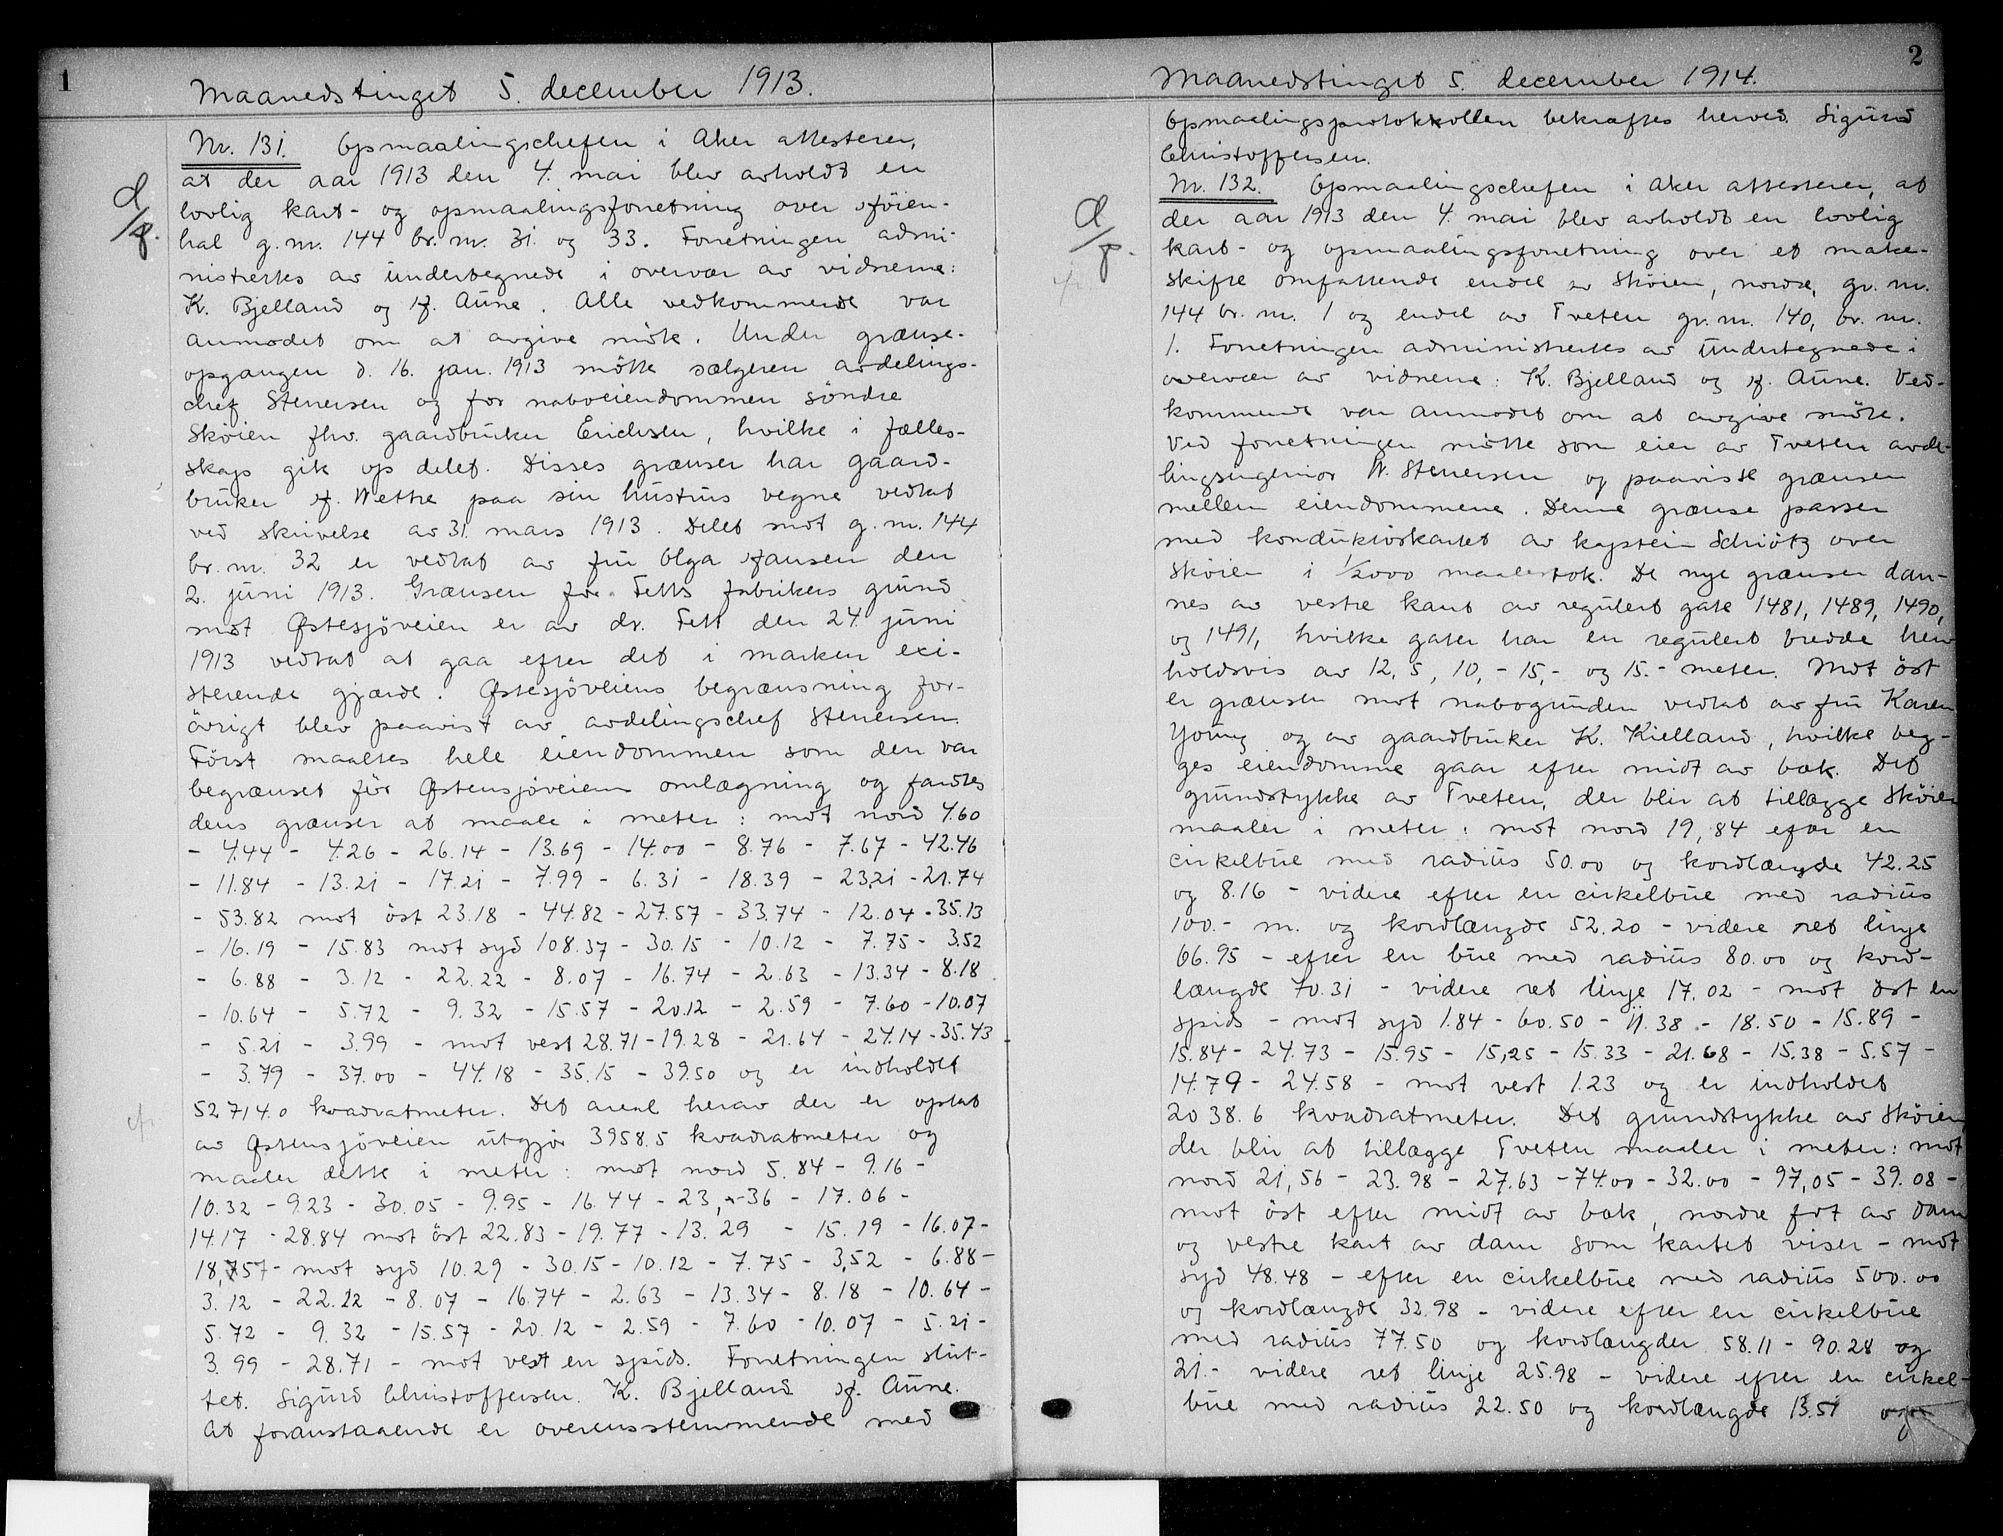 1
Maanedstinget 5. december 1913.
Nr. 131. Opmaalingschefen i Aker attesterer,
at der aar 1913 den 4. mai blev avholdt en
lovlig kart- og opmaalingsforretning over Høien-
hal g.nr. 144 br. nr. 31 og 33. Forretningen admi-
nistrertes av undertegnede i overvær av vidnerne:
K. Bjelland og H. Aune. Alle vedkommende var
anmodet om at avgive møte. Under grænse-
opgangen d. 16. jan. 1913 møtte sælgeren avdelings-
chef Stenersen og for naboeiendommen søndre
Skøien fhv. gaardbruker Erichsen, hvilke i fælles-
skap gik op delet. Disses grænser har gaard-
bruker H. Wettre paa sin hustrus vegne vedtat
ved skrivelse av 31. mars 1913. Delet mot g. nr. 144
br. nr. 32 er vedtat av fru Olga Hansen den
2. juni 1913. Grænsen for Fetts fabrikers grund
mot Østesjøveien er av dr. Fett den 24. juni
1913 vedtat at gaa efter det i marken exi-
sterende gjærde. Østesjøveiens begrænsning for-
øvrigt blev paavist av avdelingschef Stenersen.
Først maaltes hele eiendommen som den var
begrænset før Østensjøveiens omlægning og fandtes
dens grænser at maale i meter: mot nord 4.60
- 4.44 - 4.26 - 26.14 - 13.69 - 14.00 - 8.76 - 7.67 - 42.46
- 11.84 - 13.21 - 17.21 - 7.99 - 6.31 - 18.39 - 23,21 - 21.74
- 53.82 mot øst 23.18 - 44.82 - 27.57 - 33.74 - 12.04 - 35.13
- 16.19 - 15.83 mot syd 108.37 - 30.15 - 10.12 - 7.75 - 3.52
- 6.88 - 3.12 - 22.22 - 8.07 - 16.74 - 2.63 - 13.34 - 8.18
- 10.64 - 5.72 - 9.32 - 15.57 - 20.12 - 2.59 - 7.60 - 10.07
- 5.21 - 3.99 - mot vest 28.71 - 19.28 - 21.64 - 24.14 - 35.43
- 3.79 - 37.00 - 44.18 - 35.15 - 39.50 og er indholdet
52714.0 kvadratmeter. Det areal herav der er optat
av Østensjøveien utgjør 3958.5 kvadratmeter og
maaler dette i meter: mot nord 5.84 - 9.16 -
10.32 - 9.23 - 30.05 - 9.95 - 16.44 - 23, - 36 - 17.06 -
14.17 - 28.84 mot øst 22.83 - 19.77 - 13.29 - 15.19 - 16.07 -
18,57 - mot syd 10.29 - 30.15 - 10.12 - 7.75 - 3,52 - 6.88 -
3.12 - 22.22 - 8.07 - 16.74 - 2.63 - 13.34 - 8.18 - 10.64 -
5.72 - 9.32 - 15.57 - 20.12 - 2.59 - 7.60 - 10.07 - 5.21 -
3.99 - 28.71 - mot vest en spids. Forretningen slut-
tet. Sigurd Christoffersen. K. Bjelland H. Aune.
At foranstaaende er overensstemmende med
2
Maanedstinget 5. december 1914.
Opmaalingsprotokollen bekræftes herved. Sigurd
Christoffersen.
Nr. 132. Opmaalingschefen i Aker attesterer, at
der aar 1913 den 4. mai blev avholdt en lovlig
kart- og opmaalingsforretning over et make-
skifte omfattende endel av Skøien, nordre, gr. nr.
144 br. nr. 1 og endel av Tveten gr. nr. 140, br. nr.
1. Forretningen administrertes av undertegnede i
overvær av vidnene: K. Bjelland og H. Aune. Ved-
kommende var anmodet om at avgive møte.
Ved forretningen møtte som eier av Tveten avde-
lingsingeniør W. Stenersen og paaviste grænsen
mellem eiendommene. Denne grænse passer
med konduktørkartet av kaptein Schiøtz over
Skøien i 1/2000 maalestok. De nye grænser dan-
nes av vestre kant av regulert gate 1481, 1489, 1490,
og 1491, hvilke gater har en regulert bredde hen-
holdsvis av 12,5, 10,- 15,- og 15.- meter. Mot øst
er grænsen mot nabogrunden vedtat av fru Karen
Young og av gaardbruker K. Kielland, hvilke beg-
ges eiendomme gaar efter midt av bæk. Det
grundstykke av Tveten, der blir at tillægge Skøien
maaler i meter: mot nord 19,84 efter en
cirkelbue med radius 50.00 og kordlængde 42.25
og 8.16 - videre efter en cirkelbue med radius
100.- m. og kordlængde 52.20 - videre ret linje
66.95 - efter en bue med radius 80.00 og kord-
længde 70.31 - videre ret linje 17.02 - mot øst en
spids - mot syd 1.84 - 60.50 - 11.38 - 18.50 - 15.89 -
15.84 - 24.73 - 15.95 - 15,25 - 15.33 - 21.68 - 15.38 - 5.57 -
14.79 - 24.58 - mot vest 1.23 og er indholdet
2038.6 kvadratmeter. Det grundstykke av Skøien
der blir at tillægge Tveten maaler i meter: mot
nord 21,56 - 23.98 - 27.63 - 74.00 - 32.00 - 97,05 - 39.08 -
mot øst efter midt av bæk, nordre fot av dam
og vestre kant av dam som kartet viser - mot
syd 48.48 - efter en cirkelbue med radius 500.00
og kordlængde 32.98 - videre efter en cirkelbue
med radius 77.50 og kordlængder 58.11 - 90.28 og
21.- videre ret linje 25.98 - videre efter en cirkel-
bue med radius 22.50 og kordlængde 13.51 og